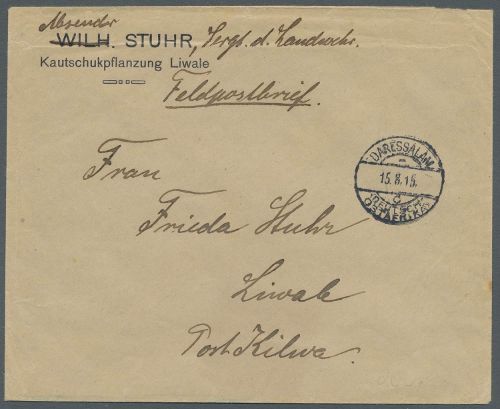 Absender
WILH. STUHR, Sergt. d. Landwehr.
Kautschukpflanzung Liwale
Feldpostbrief.
DARESSALAM
15.8.15.
c
DEUTSCH-
OSTAFRIKA
Frau
Frieda Stuhr
Liwale
Post Kilwa.